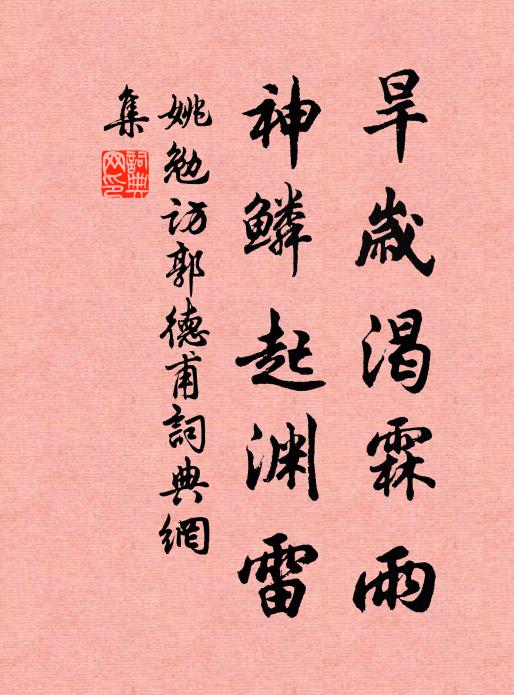 旱歲渴霖雨
神鱗起渊雷
姚勉訪郭德甫詞典網
集
詞典网印